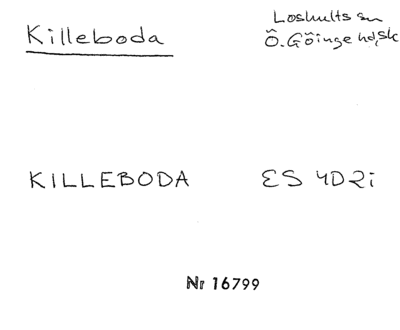 Killeboda
Loshults sn
Ö. Göinge hd, Sk
KILLEBODA
ES 4D2i
Nr 16799